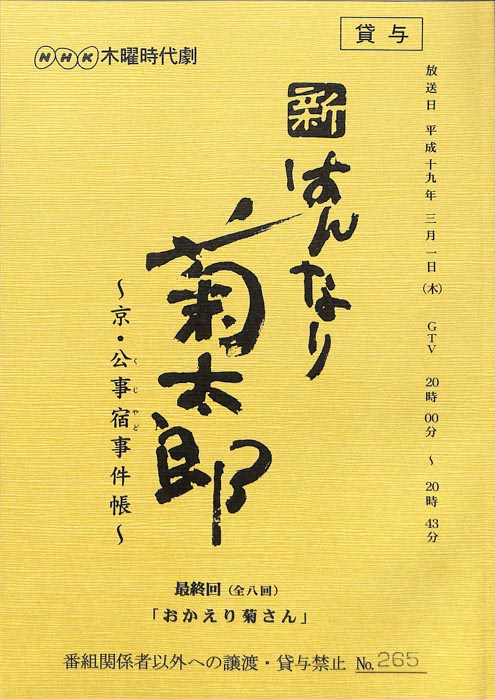 貸与
NHK木曜時代劇
放送日 平成十九年 三月一日(木) GTV 20時00分 ~ 20時43分
新はんなり
菊太郎
~京・公事宿事件帳~
くじやど
最終回(全八回)
「おかえり菊さん」
番組関係者以外への譲渡・貸与禁止 No.265